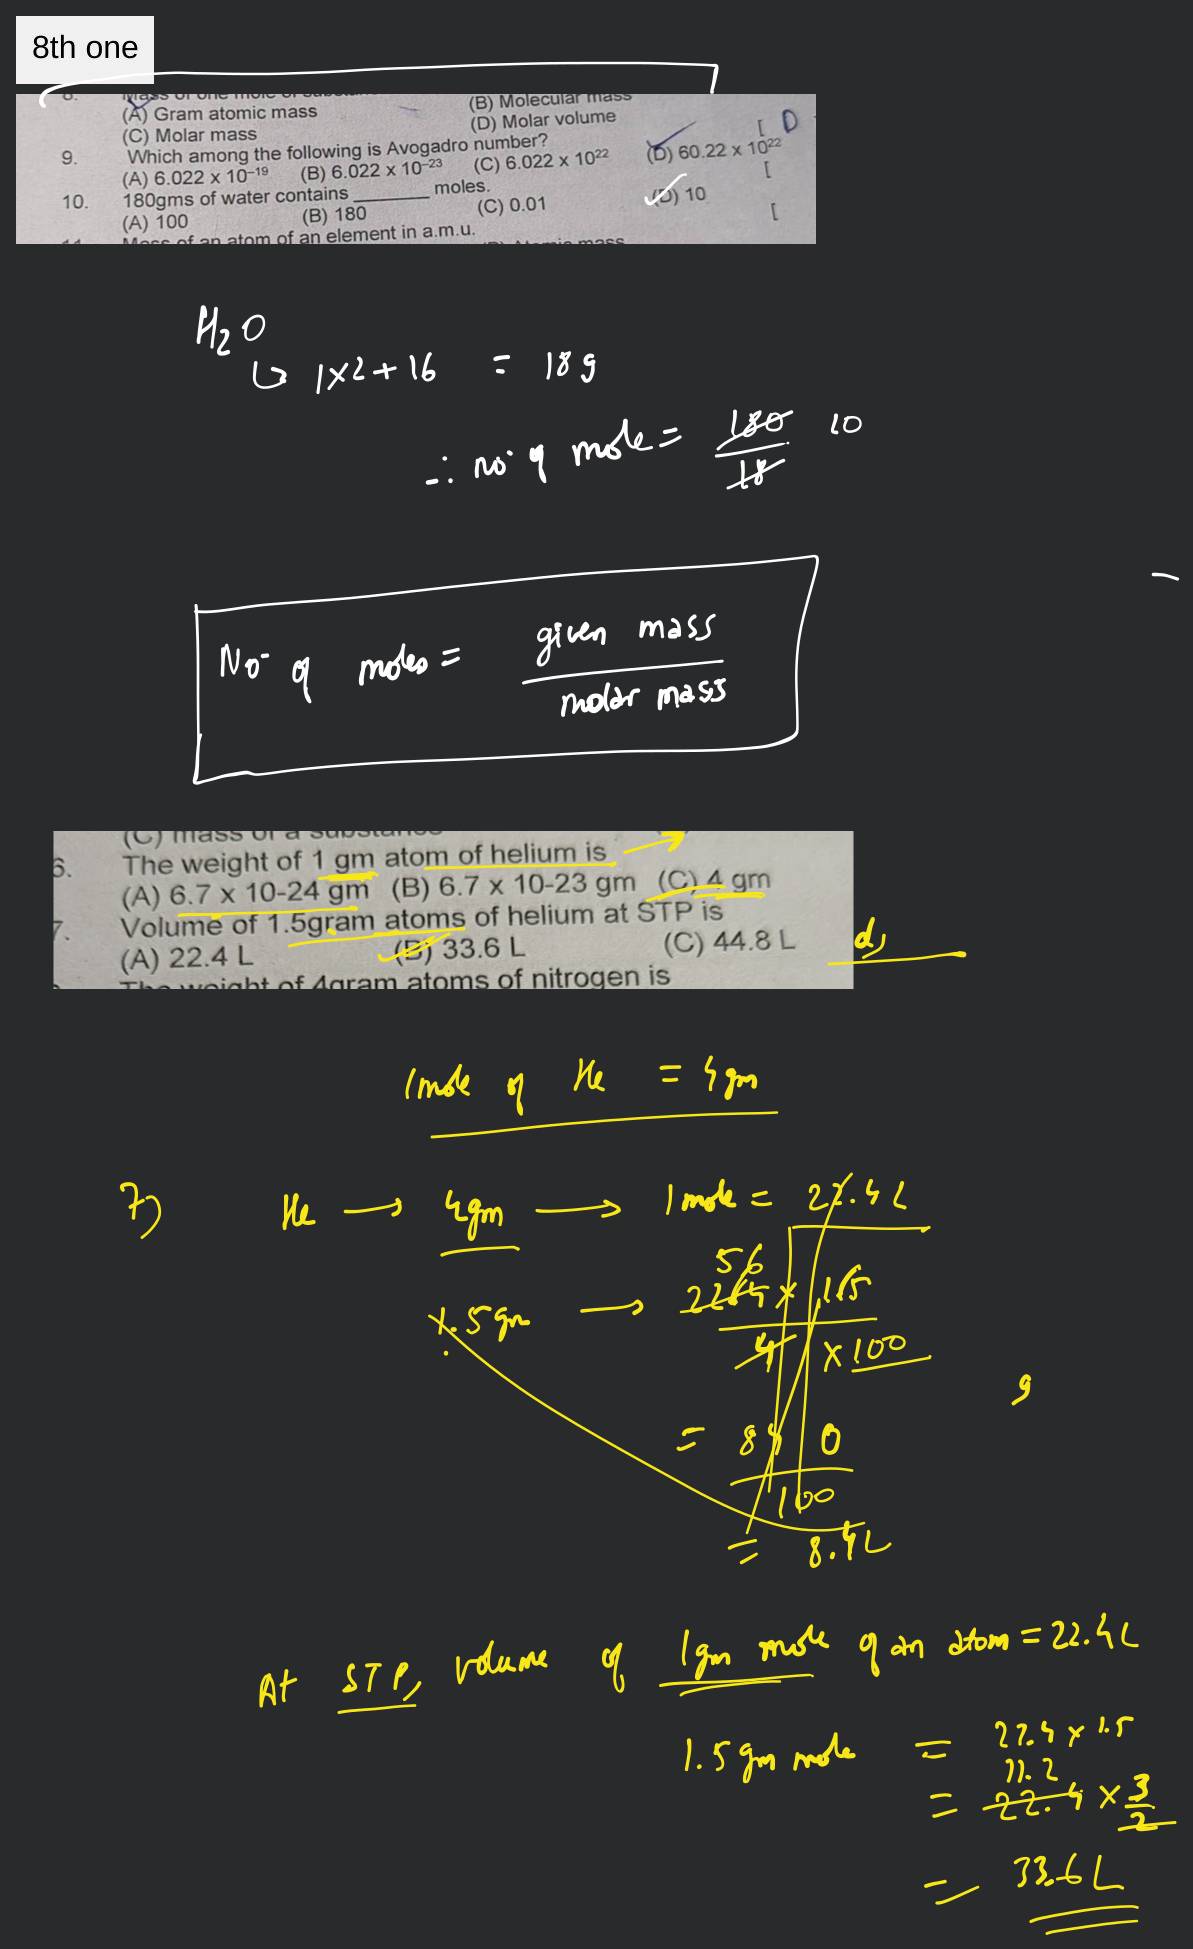 8th one
8. Mass of one mole of substan
(A) Gram atomic mass (B) Molecular mass
(C) Molar mass (D) Molar volume
9. Which among the following is Avogadro number? [ D
(A) 6.022 x 10⁻¹⁹ (B) 6.022 x 10⁻²³ (C) 6.022 x 10²² (D) 60.22 x 10²²
10. 180gms of water contains ________ moles. [
(A) 100 (B) 180 (C) 0.01 (D) 10
11. Mass of an atom of an element in a.m.u. [
H₂O
↳ 1x2+16 = 18g
∴ no· of mole = 180/18 10
No· of moles = given mass / molar mass
(C) mass of a substance
6. The weight of 1 gm atom of helium is
(A) 6.7 x 10-24 gm (B) 6.7 x 10-23 gm (C) 4 gm
7. Volume of 1.5gram atoms of helium at STP is
(A) 22.4 L (B) 33.6 L (C) 44.8 L d,
The weight of 4gram atoms of nitrogen is
1mole of He = 4gm
7) He → 4gm → 1mole = 22.4L
56
1.5gm → 22.4 x 1.5
4 x 100
= 840
100
= 8.4L
g
At STP, volume of 1gm mole of an atom = 22.4L
1.5gm mole = 22.4 x 1.5
11.2
= 22.4 x 3/2
= 33.6L